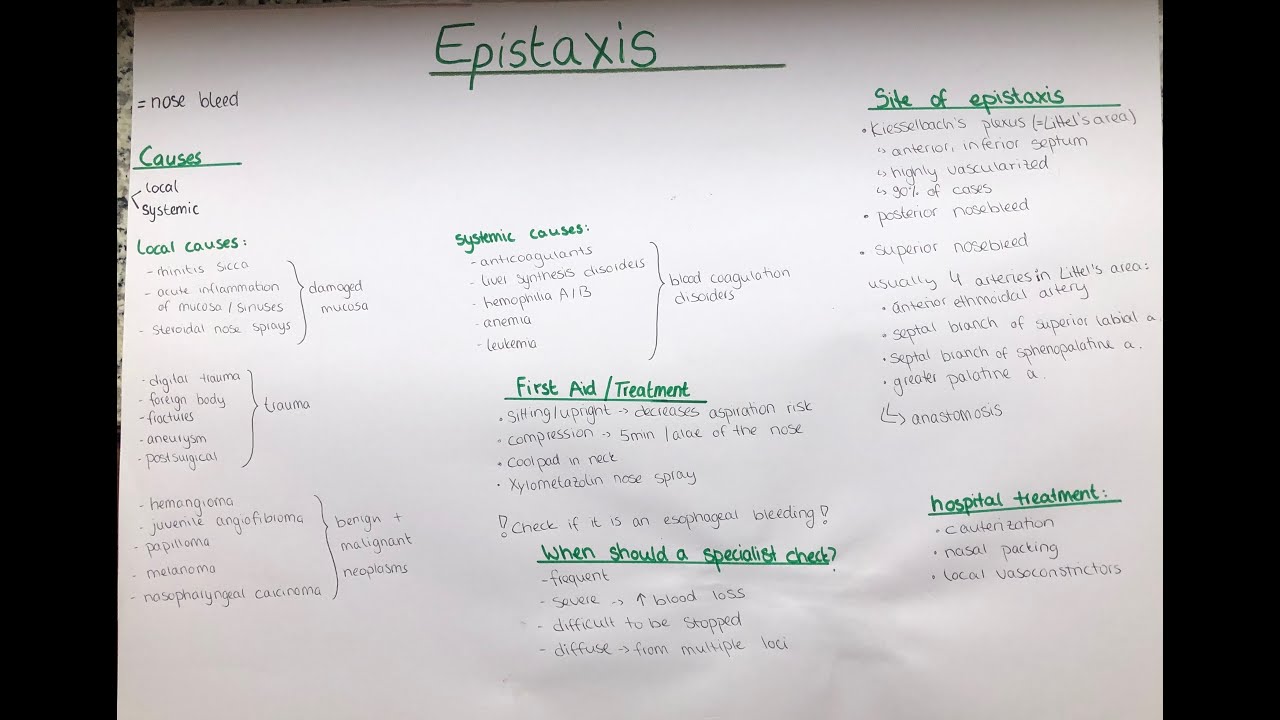 Epistaxis
= nose bleed
Causes
local
systemic
local causes:
- rhinitis sicca
- acute inflammation
of mucosa / sinuses
- steroidal nose sprays
damaged
mucosa
- digital trauma
- foreign body
- fractures
- aneurysm
- postsurgical
trauma
- hemangioma
- juvenile angiofibroma
- papilloma
- melanoma
- nasopharyngeal carcinoma
benign +
malignant
neoplasms
systemic causes:
- anticoagulants
- liver synthesis disorders
- hemophilia A/B
- anemia
- leukemia
blood coagulation
disorders
First Aid / Treatment
• sitting/upright → decreases aspiration risk
• compression → 5min / alae of the nose
• coolpad in neck
• Xylometazolin nose spray
! Check if it is an esophageal bleeding !
When should a specialist check?
- frequent
- severe → ↑ blood loss
- difficult to be stopped
- diffuse → from multiple loci
Site of epistaxis
• Kiesselbach's plexus (= Littel's area)
↳ anterior, inferior septum
↳ highly vascularized
↳ 90% of cases
• posterior nosebleed
• superior nosebleed
usually 4 arteries in Littel's area:
• anterior ethmoidal artery
• septal branch of superior labial a.
• septal branch of sphenopalatine a.
• greater palatine a.
↳ anastomosis
hospital treatment:
• cauterization
• nasal packing
• local vasoconstrictors